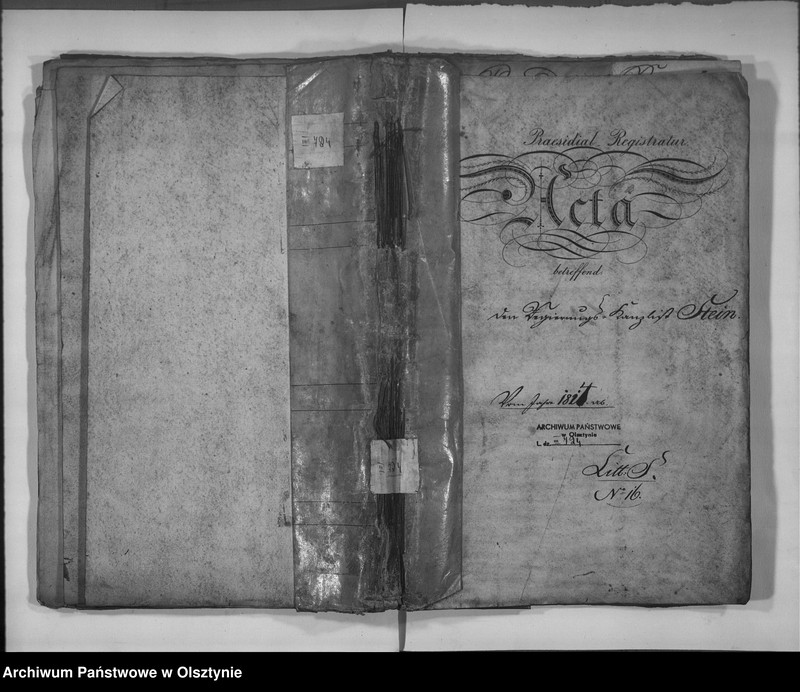 III 484
Praesidial Registratur.
Acta
betreffend
den Regierungs-Kanzlist Stein.
Vom Jahr
ARCHIWUM PAŃSTWOWE
w Olsztynie
L. dz. III 484
Litt. S.
No 16.
Archiwum Państwowe w Olsztynie